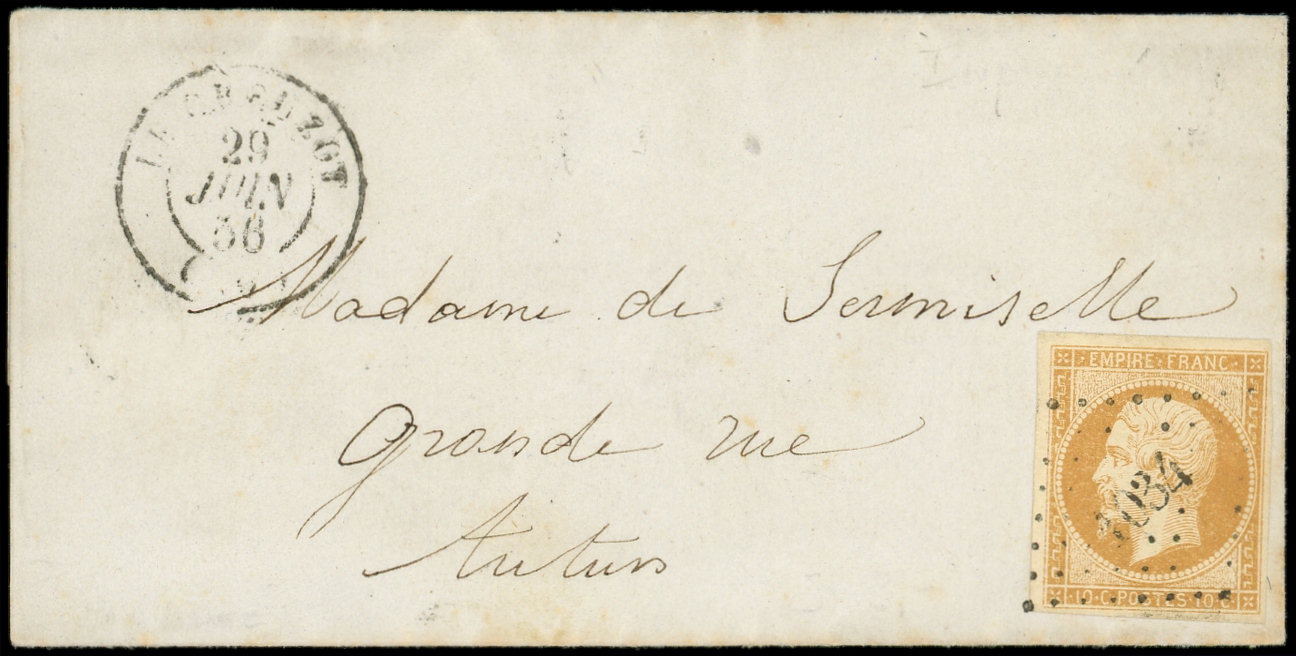 LE CREUZOT
29
JUIN
56
Madame de Sermiselle
grande rue
Autun
EMPIRE FRANC
1034
10·C·POSTES·10·C